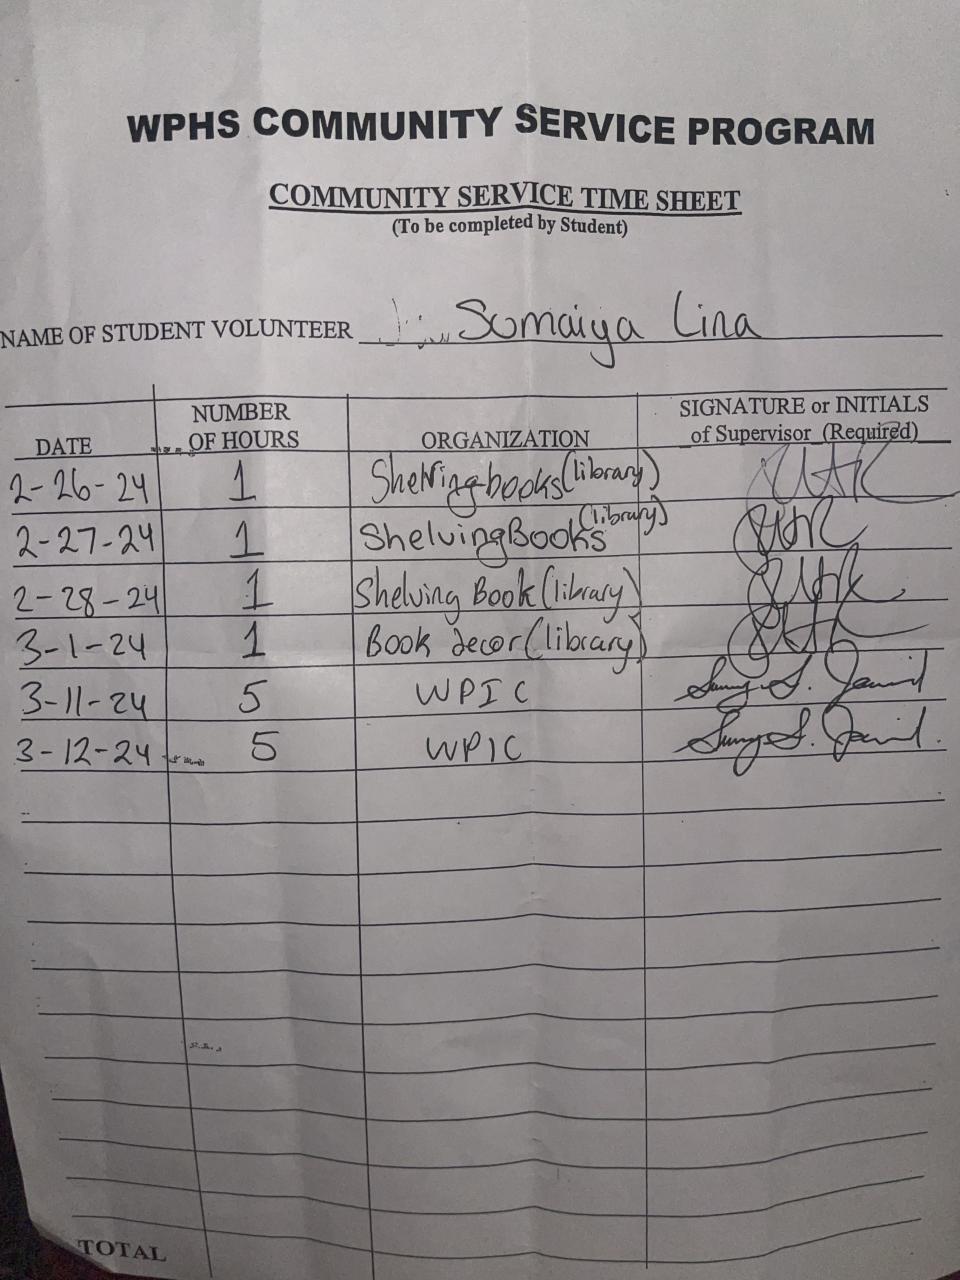 WPHS COMMUNITY SERVICE PROGRAM
COMMUNITY SERVICE TIME SHEET
(To be completed by Student)
NAME OF STUDENT VOLUNTEER Somaiya Lina
DATE NUMBER OF HOURS ORGANIZATION SIGNATURE or INITIALS of Supervisor (Required)
2-26-24 1 Shelving books (library)
2-27-24 1 Shelving Books (library)
2-28-24 1 Shelving Book (library)
3-1-24 1 Book decor (library)
3-11-24 5 WPIC
3-12-24 5 WPIC
TOTAL